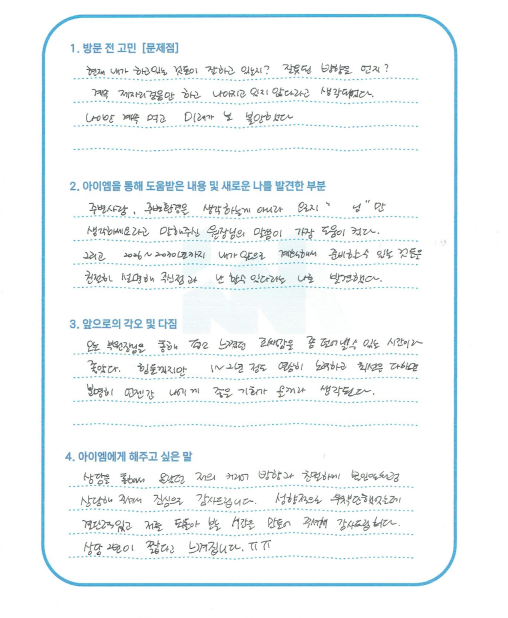 1. 방문 전 고민 [문제점]
현재 내가 하고있는 것들이 잘하고 있는지? 잘못된 방향은 먼지?
계속 제자리걸음만 하고 나아지고 있지 않다라고 생각되었다.
나이만 계속 먹고 미래가 늘 불안했다
2. 아이엠을 통해 도움받은 내용 및 새로운 나를 발견한 부분
주변사람, 주변환경은 생각하는게 아니라 오로지 " 넘" 만
생각하세요라고 말해주신 원장님의 말씀이 가장 도움이 컸다.
그리고 2026~2030년까지 내가 앞으로 계획해서 준비할수 있는 것들을
천천히 설명해 주신점과 난 할수 있다라는 나를 발견했다.
3. 앞으로의 각오 및 다짐
오늘 부원장님을 통해 겪고 느꼈던 고배감을 좀 덜어낼수 있는 시간이라
좋았다. 힘들겠지만 1~2년 정도 열심히 노력하고 최선을 다하면
분명히 언젠간 나에게 좋은 기회가 올거라 생각된다.
4. 아이엠에게 해주고 싶은 말
상담을 통해서 올랐던 저의 커리어 방향과 친절하게
상담해 주셔서 진심으로 감사드립니다. 성향적으로
결단력있고 저를 도울아 보는 시간을 만들어 주셔서 감사드립니다.
상담 2번이 짧다고 느껴집니다. ㅠㅠ